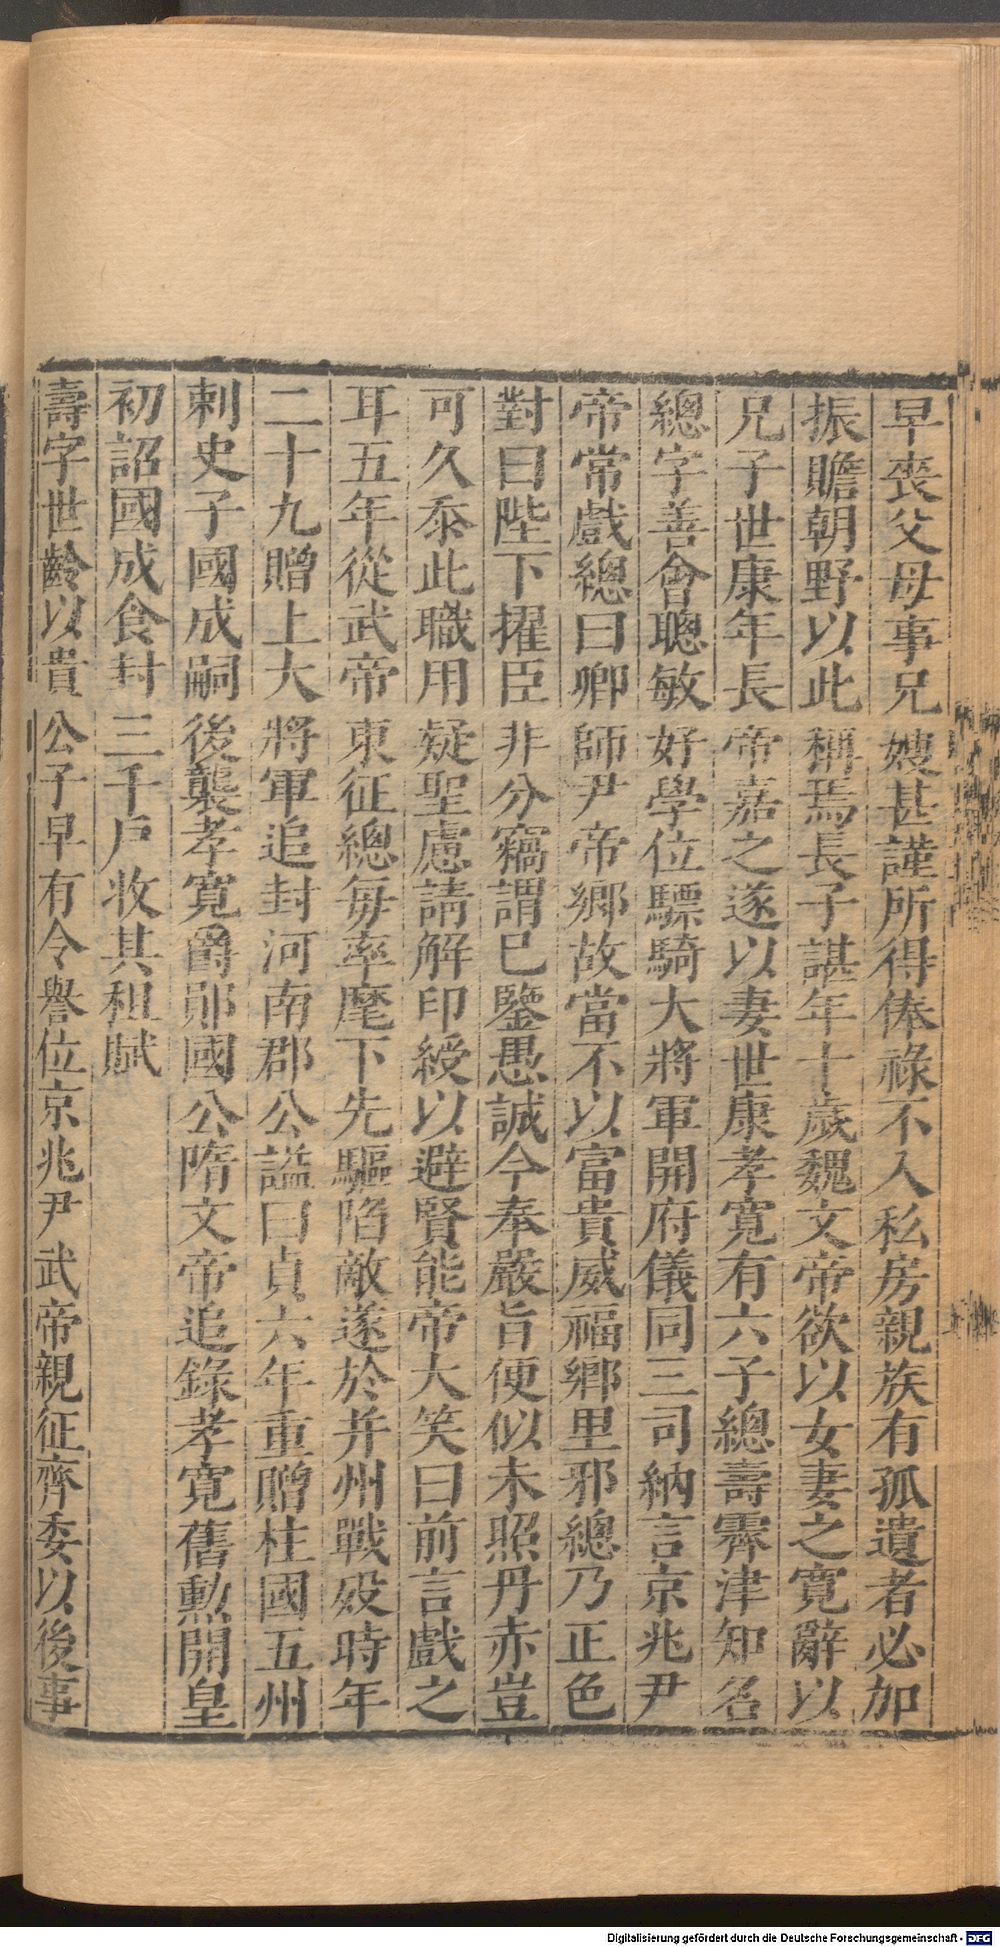 早喪父母事兄嫂甚謹所得俸祿不入私房親族有孤遺者必加
振贍朝野以此稱焉長子諶年十歲魏文帝欲以女妻之寬辭以
兄子世康年長帝嘉之遂以妻世康孝寬有六子總壽霽津知名
總字善會聰敏好學位驃騎大將軍開府儀同三司納言京兆尹
帝常戲總曰卿師尹帝鄉故當不以富貴威福鄉里邪總乃正色
對曰陛下擢臣非分竊謂已鑒愚誠今奉嚴旨便似未照丹赤豈
可久忝此職用疑聖慮請解印綬以避賢能帝大笑曰前言戲之
耳五年從武帝東征總每率麾下先驅陷敵遂於并州戰歿時年
二十九贈上大將軍追封河南郡公諡曰貞六年重贈柱國五州
刺史子國成嗣後襲孝寬爵鄖國公隋文帝追錄孝寬舊勲開皇
初詔國成食封三千戶收其租賦
壽字世齡以貴公子早有令譽位京兆尹武帝親征齊委以後事
Digitalisierung gefördert durch die Deutsche Forschungsgemeinschaft - DFG